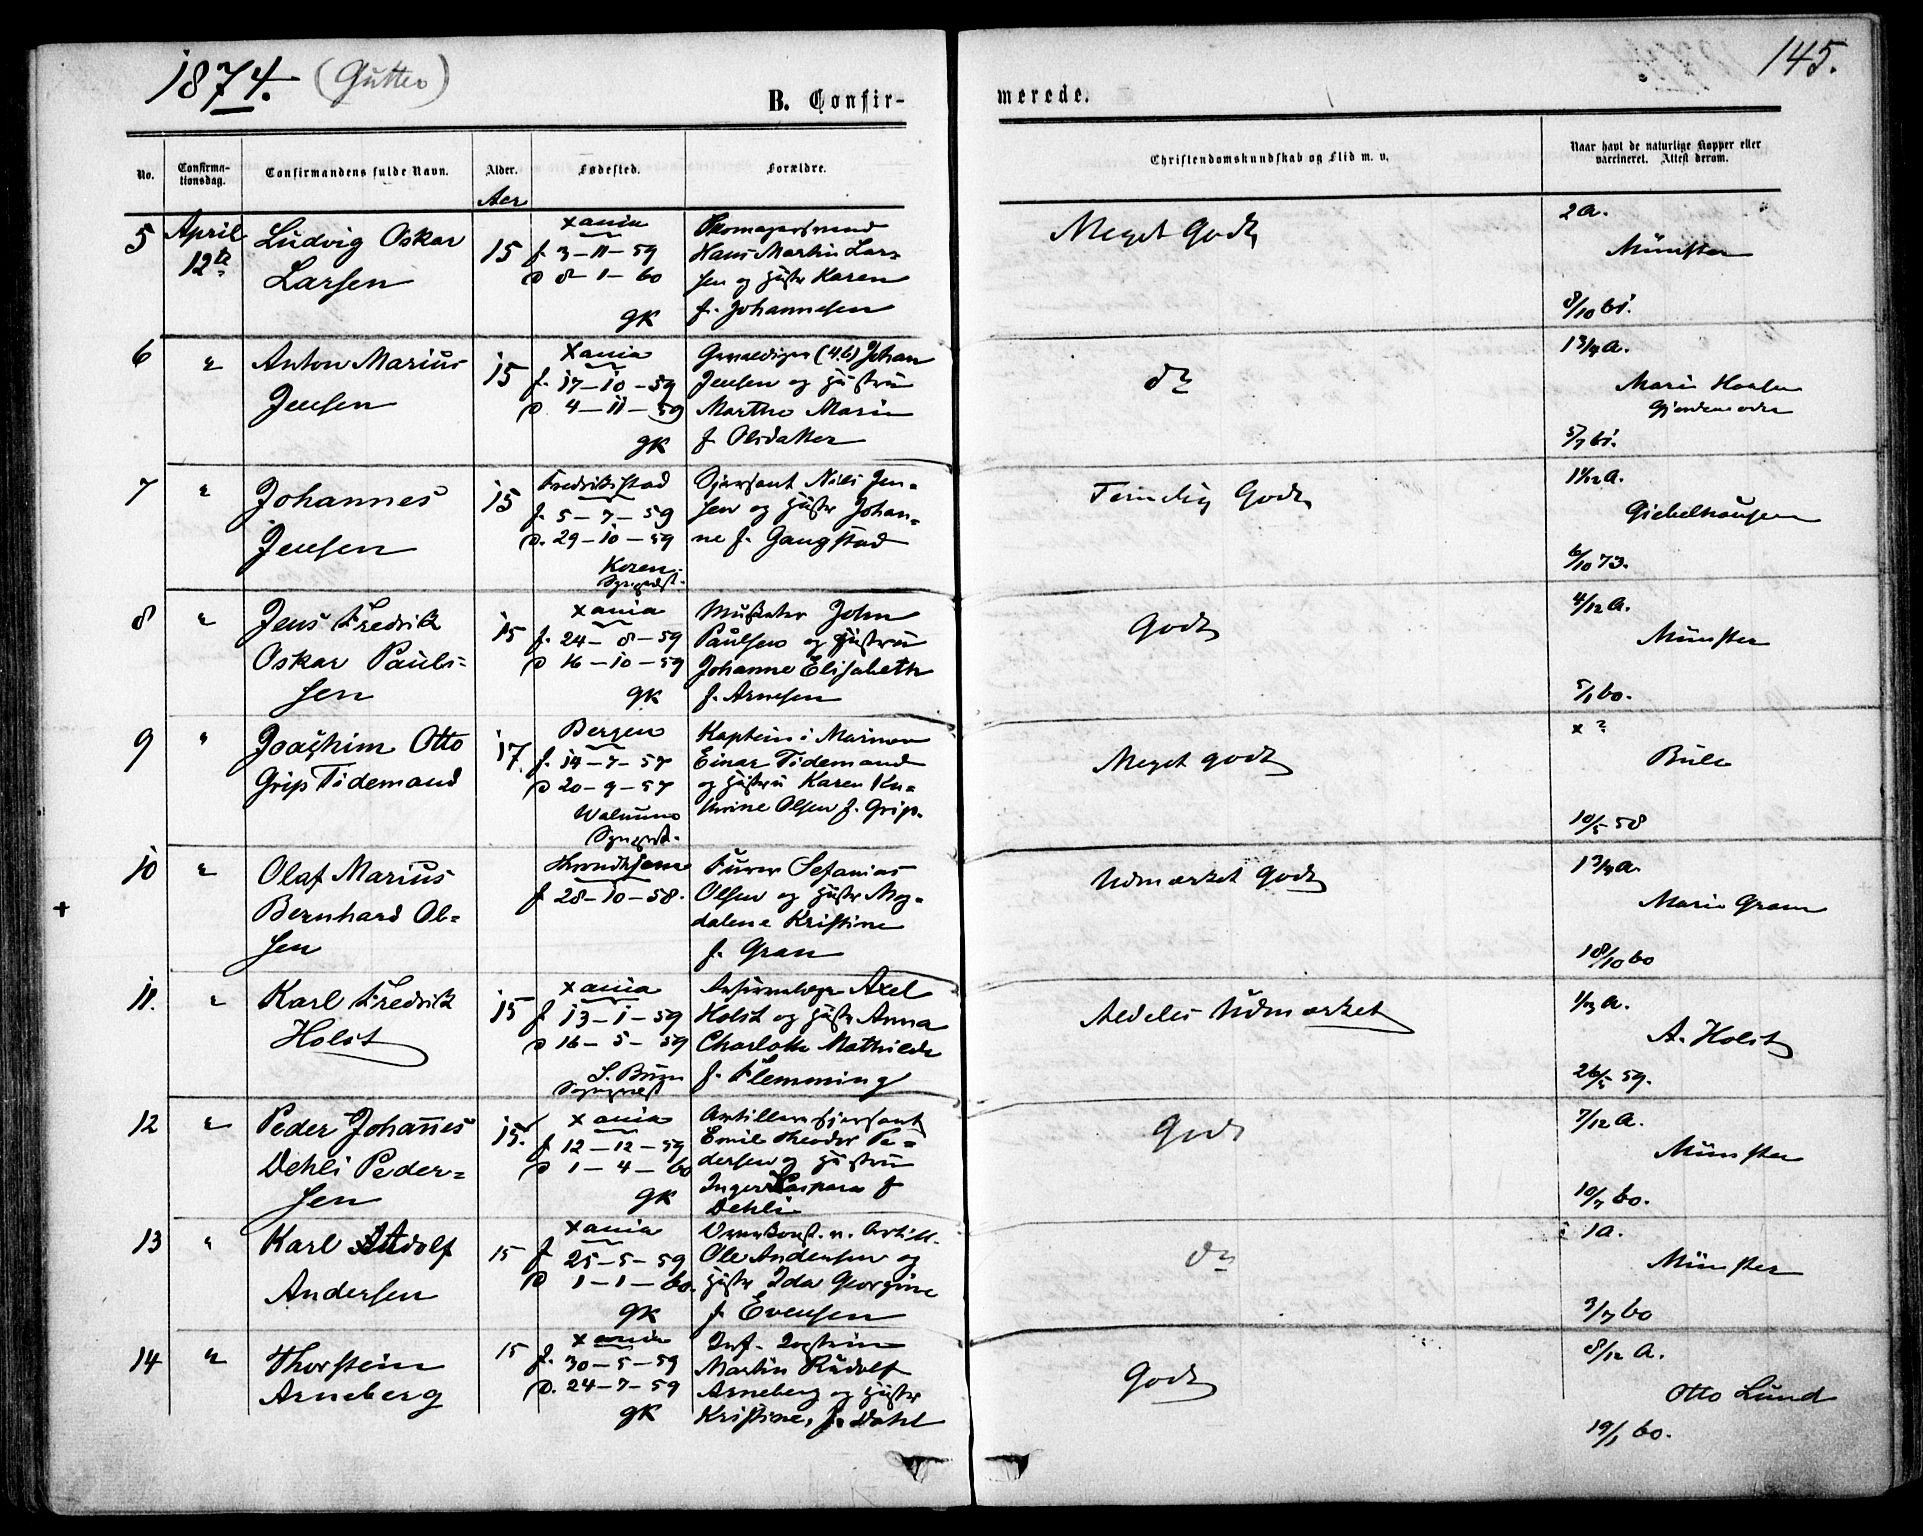 1874. (Gutter)
145.
B. Confir-
merede.
No.
Confirma-
tionsdag.
Confirmandens fulde Navn.
Alder.
Fødested.
Forældre.
Christendomskundskab og Flid m. v.
Naar havt de naturlige Kopper eller
vaccineret. Attest derom.
Aar
5 April 12te
Ludvig Oskar
Larsen
15
Xania
f. 3-11-59
D 8-1-60
GK
Hans Martin Lar=
sen og Hustr Karen
f. Johannesen
Meget Godt
2 A.
Münster
8/10 61.
6 "
Anton Marius
Jensen
15
Xania
f. 17-10-59
D. 4-11-59
GK
Gevaldiger (4.b) Johan
Jensen og Hustru
Marthe Marie
f. Olsdatter
do
1 3/4 A.
Marie Hansen
Gjordemoder
5/7 61.
7 "
Johannes
Jensen
15
Fredrikstad
f. 5-7-59
D. 29-10-59
Koren
Sognepst.
Sjersant Niels Jen=
sen og Hustr Johan=
ne f. Gangstad
Temelig Godt
11/12 A.
Giebelhausen
6/10 73.
8 "
Jens Fredrik
Oskar Pauls=
sen
15
Xania
f. 24-8-59
D 16-10-59
GK
Musketer John
Paulsen og Hustru
Johanne Elisabeth
f. Arnesen
Godt
4/12 A.
Münster
5/1 60.
9 "
Joachim Otto
Grip Tidemand
17.
Bergen
f. 14-7-57
D 20-9-57
Sognepst.
Kaptein i Marinen
Einar Tidemand
og Hustru Karen Ka=
thrine Olsen f. Grip.
Meget godt
x ?
Bull
10/5 58
10 "
Olaf Marius
Bernhard Ol=
sen
+
Throndhjem
f 28-10-58.
Furer Sefanias
Olsen og Hustr Mag=
dalene Kristine
f. Gran
Udmærket Godt
1 3/4 A.
Marie Gram
18/10 60
11. "
Karl Fredrik
Holst
15
Xania
f 13-1-59
D 16-5-59
Sognepst
Axel
Holst og Hustr Anna
Charlotte Mathilde
f. Flemming
Aldeles Udmærket
1/3 A.
A. Holst
26/5 59.
12 "
Peder Johannes
Dehli Peder=
sen
15.
Xania
f 12-12-59
D 1-4-60
GK
Artillerisjersant
Emil Theodor Pe=
dersen og Hustru
Inger Kaspara f
Dehli
Godt
7/12 A.
Münster
10/7 60.
13 "
Karl Adolf
Andersen
15
Xania
f. 25-5-59
D 1-1-60.
GK
Overkonst. v. Artill.
Ole Andersen og
Hustr Ida Georgine
f. Evensen
do
1 A.
Münster
3/7 60
14 "
Thorstein
Arneberg
15
Xania
f. 30-5-59
D. 24-7-59
GK
Martin Rudolf
Arneberg og Hustr
Kristine, f. Dahl
Godt
8/12 A.
Otto Lund
19/1 60.